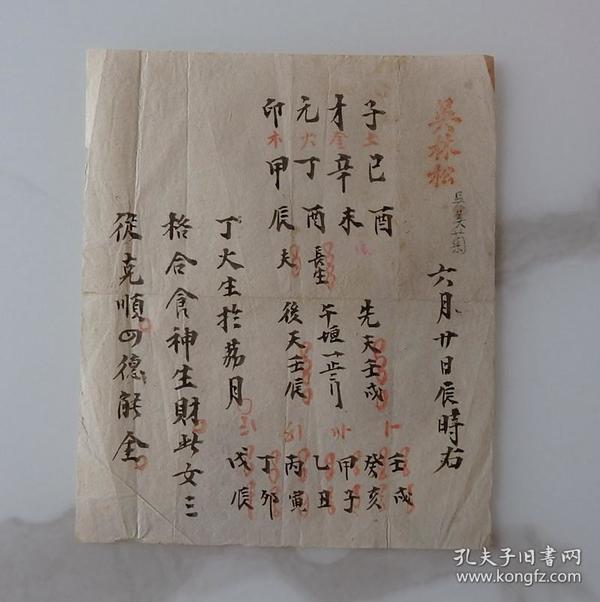 吳林松
六月廿日辰時右
子土己酉
才金辛未
元火丁酉長生
卯木甲辰夫
先天壬戌
午垣
後天壬辰
壬戌
癸亥
甲子
乙丑
丙寅
丁卯
戊辰
丁火生於荔月
格合食神生財此女三
從克順四德能全
孔夫子旧书网
www.kongfz.com